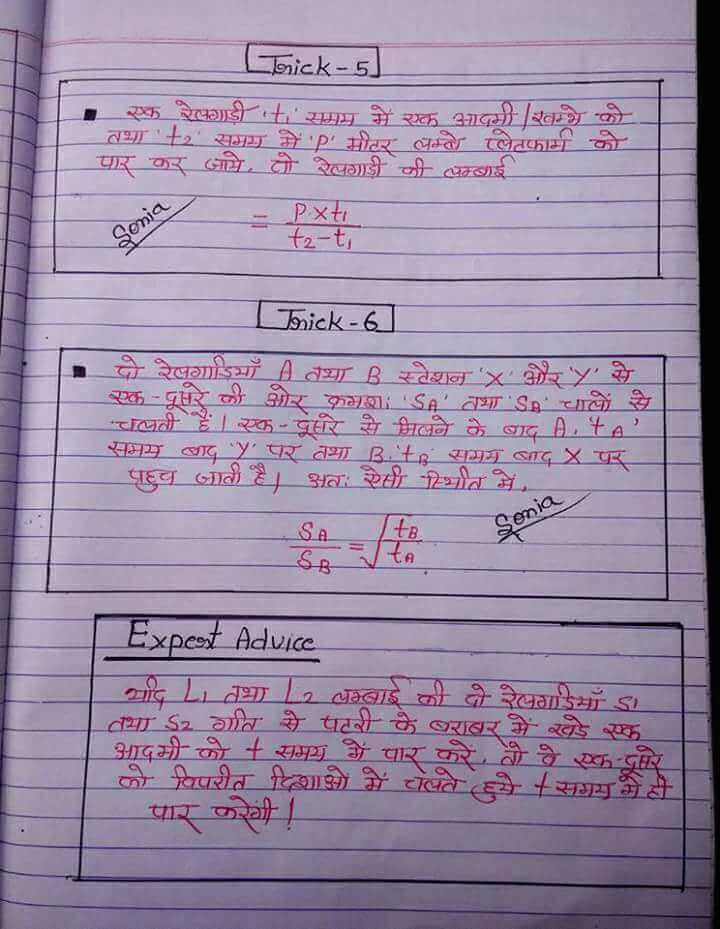 Trick-5
▪ एक रेलगाड़ी 't₁' समय में एक आदमी/खम्भे को
तथा 't₂' समय में 'P' मीटर लम्बे प्लेटफार्म को
पार कर जाये, तो रेलगाड़ी की लम्बाई
= P×t₁ / t₂-t₁
Sonia
Trick-6
▪ दो रेलगाडियाँ A तथा B स्टेशन 'X' और 'Y' से
एक-दूसरे की ओर क्रमशः 'SA' तथा 'SB' चालों से
चलती हैं। एक-दूसरे से मिलने के बाद A, 'tA'
समय बाद 'Y' पर तथा B, 'tB' समय बाद X पर
पहुच जाती है। अतः ऐसी स्थिति में,
SA / SB = √tB / tA
Sonia
Expert Advice
यदि L₁ तथा L₂ लम्बाई की दो रेलगाडियाँ S₁
तथा S₂ गति से पटरी के बराबर में खडे एक
आदमी को t समय में पार करे, तो वे एक-दूसरे
को विपरीत दिशाओ में चलते हुये t समय में ही
पार करेंगी!